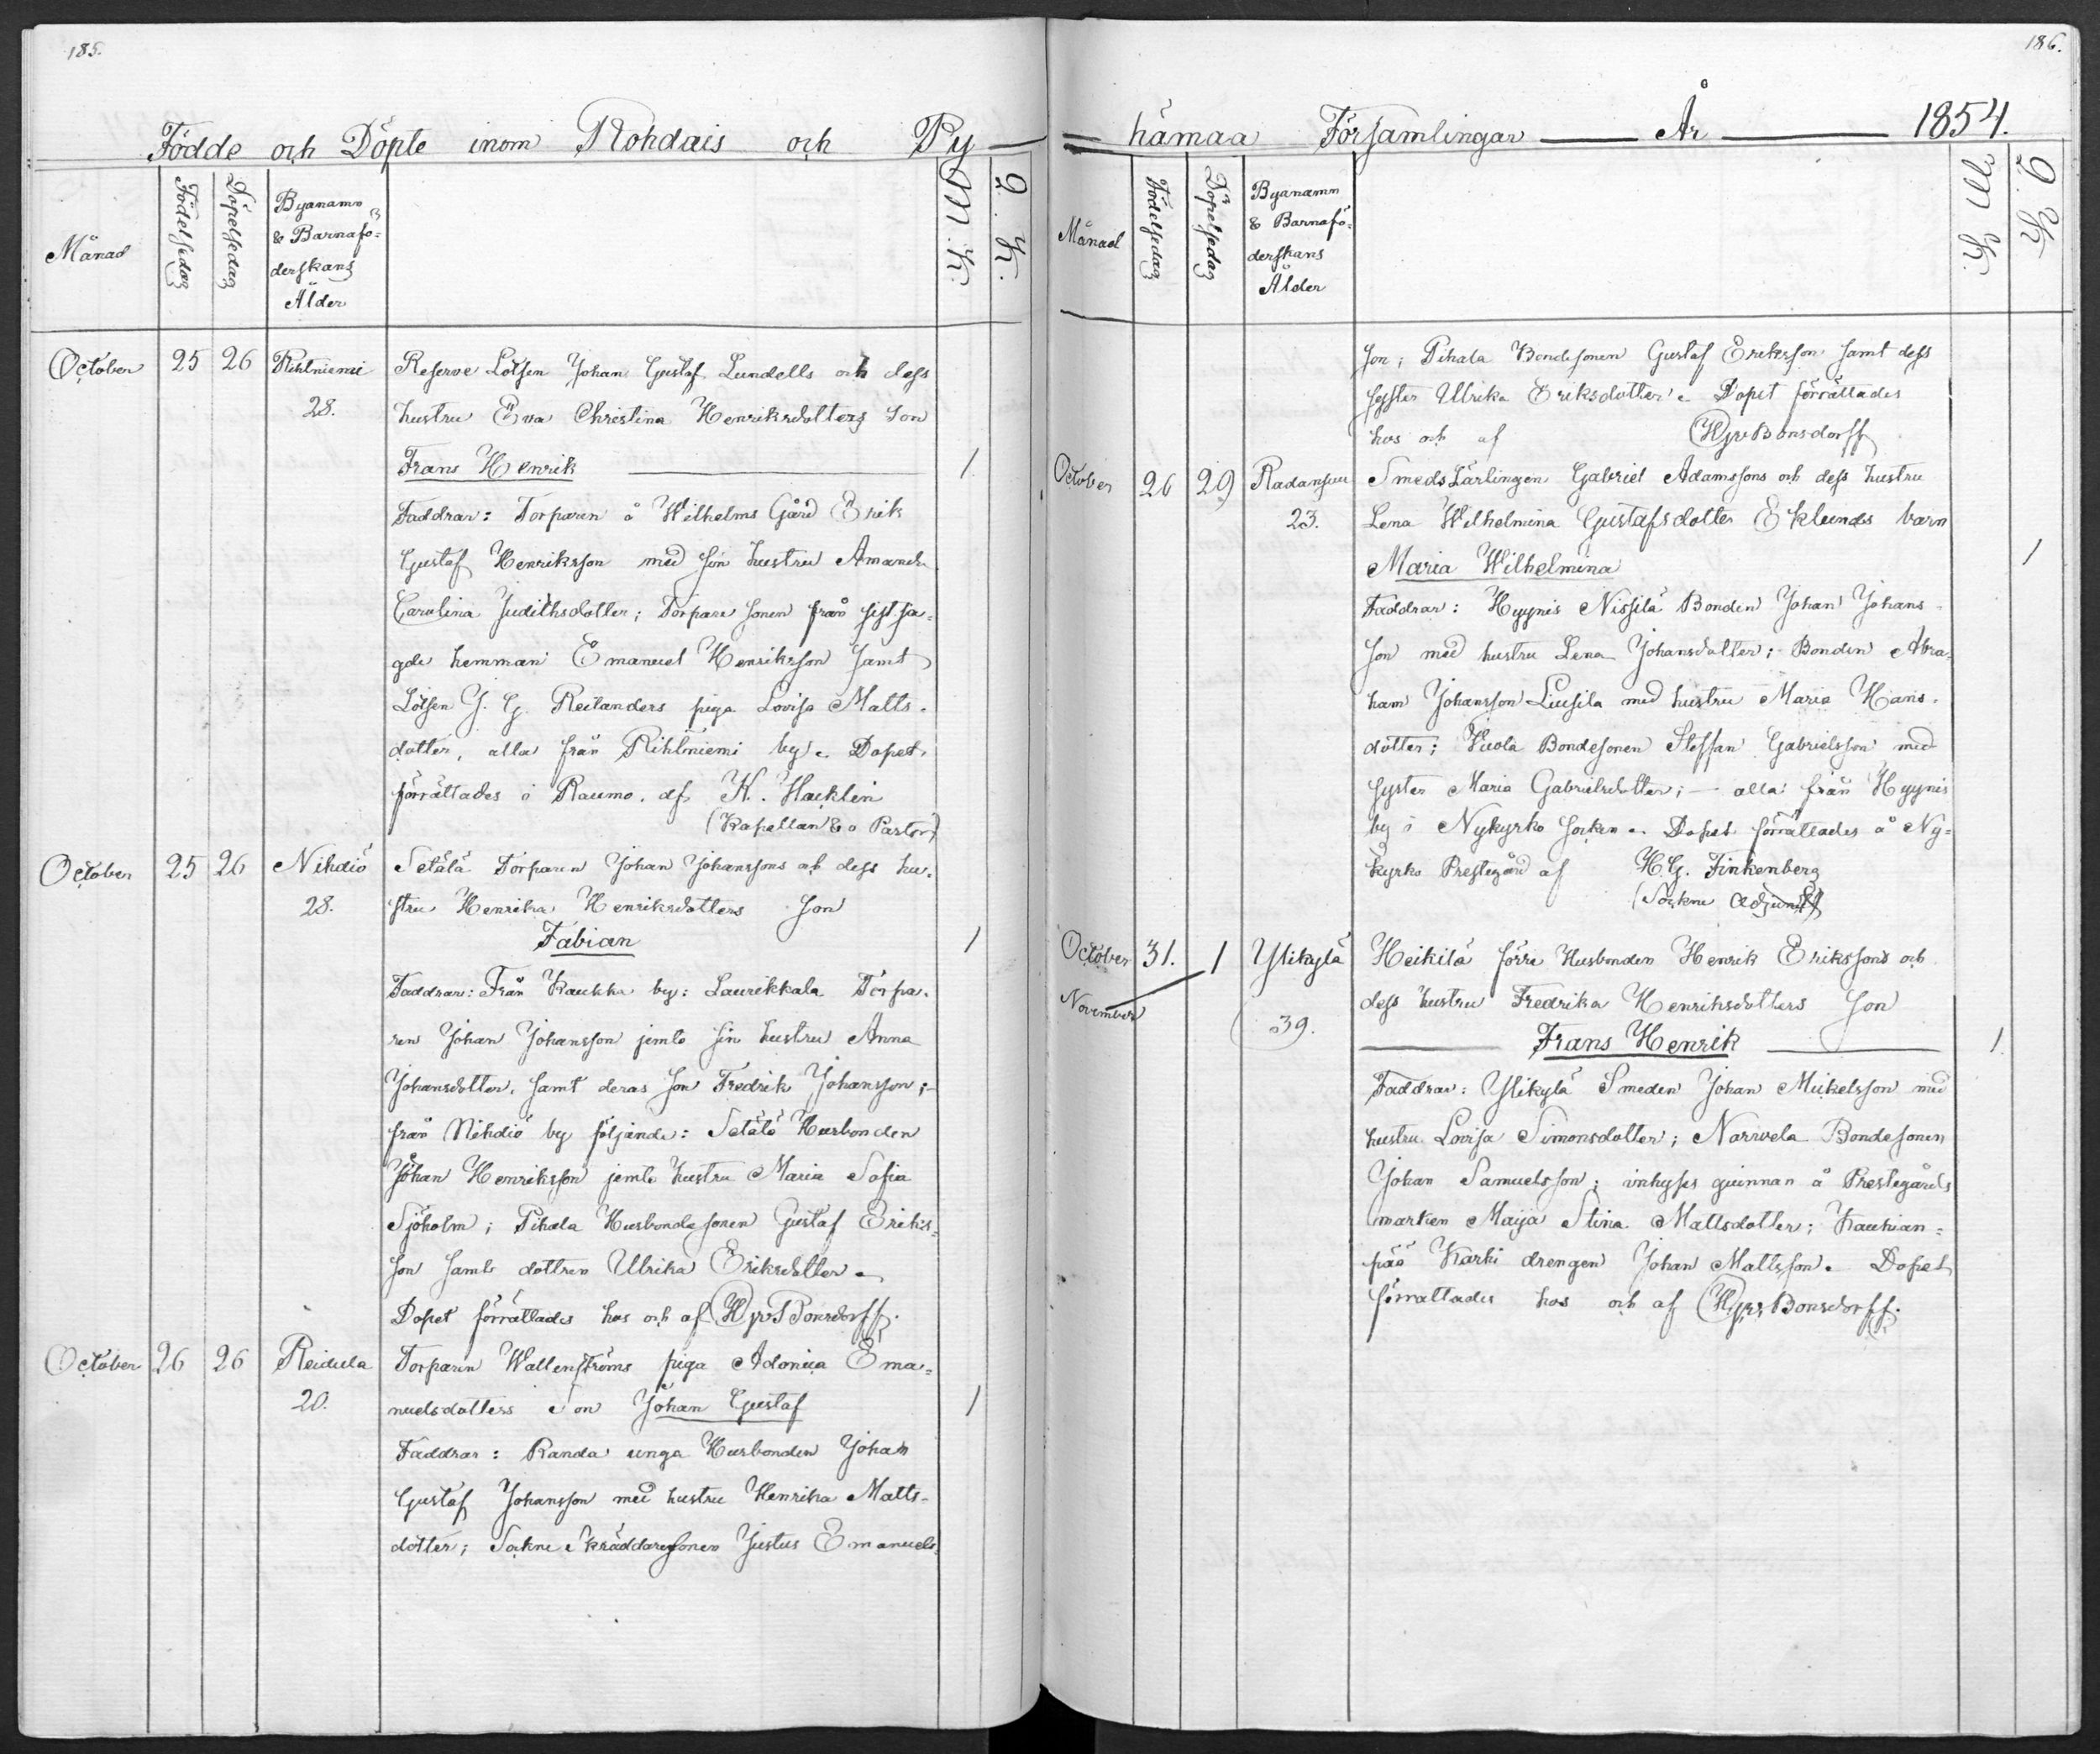 185.
Födde och Döpte inom Rohdais och Py
Månad
Födelsedag
Döpelsedag
Byanamn
& Barnafö-
derskans
Ålder
M. K.
Q. K.
October 25 26 Rihtniemi Reserve Lotsen Johan Gustaf Lundells och dess
28. hustru Eva Christina Henriksdotters Son
Frans Henrik 1.
Faddrar: Torparen å Wilhelms Gård Erik
Gustaf Henriksson med sin hustru Amanda
Carolina Judithsdotter; Torpare sonen från sist sa-
gde hemman Emanuel Henriksson samt
Lotsen J. G. Reilanders piga Lovisa Matts-
dotter, alla från Rihtniemi by. Dopet
förrättades i Raumo, af K. Hacklin
(Kapellan & o Pastor)
October 25 26 Nihdiö Setälä Torparen Johan Johanssons och dess hu-
28. stru Henrika Henriksdotters Son
Fabian 1
Faddrar: Från Kaukka by: Laurikkala Torpa-
ren Johan Johansson jemte sin hustru Anna
Johansdotter, samt deras Son Fredrik Johansson;
från Nihdiö by följande: Setälä Husbonden
Johan Henriksson jemte hustru Maria Sofia
Sjöholm; Pihala Husbondesonen Gustaf Eriks-
son samt dottren Ulrika Eriksdotter.
Dopet förrättades hos och af Hjr Bonsdorff.
October 26 26 Reidula Torparen Wallenströms piga Adonica Ema-
20. nuelsdotters Son Johan Gustaf 1
Faddrar: Randa unga Husbonden Johan
Gustaf Johansson med hustru Henrika Matts-
dotter; Sockne Skräddaresonen Justus Emanuels-
186.
hämaa Församlingar År 1854.
Månad
Födelsedag
Döpelsedag
Byanamn
& Barnafö-
derskans
Ålder
M. K.
Q. K.
son; Pihala Bondesonen Gustaf Eriksson samt dess
syster Ulrika Eriksdotter. Dopet förrättades
hos och af Hjr Bonsdorff
October 26 29 Radansuu Smeds Lärlingen Gabriel Adamssons och dess hustru
23. Lena Wilhelmina Gustafsdotter Eklunds barn
Maria Wilhelmina 1
Faddrar: Hyynis Nissilä Bonden Johan Johans-
son med hustru Lena Johansdotter; Bonden Abra-
ham Johansson Liusila med hustru Maria Hans-
dotter; Kuola Bondesonen Steffan Gabrielsson med
syster Maria Gabrielsdotter; — alla från Hyynis
by i Nykyrko socken. Dopet förrättades å Ny-
kyrko Prestegård af H. G. Finkenberg
(Sockne Adjunkt)
October 31. 1 Ylikylä Heikilä förre Husbonden Henrik Erikssons och
November 39. dess hustru Fredrika Henriksdotters Son
Frans Henrik 1.
Faddrar: Ylikylä Smeden Johan Mickelsson med
hustru Lovisa Simonsdotter; Narvela Bondesonen
Johan Samuelsson; inhyses quinnan å Prestegårds
marken Maija Stina Mattsdotter; Kauhian-
pää Karki drengen Johan Mattsson. Dopet
förrattades hos och af Hjr Bonsdorff.